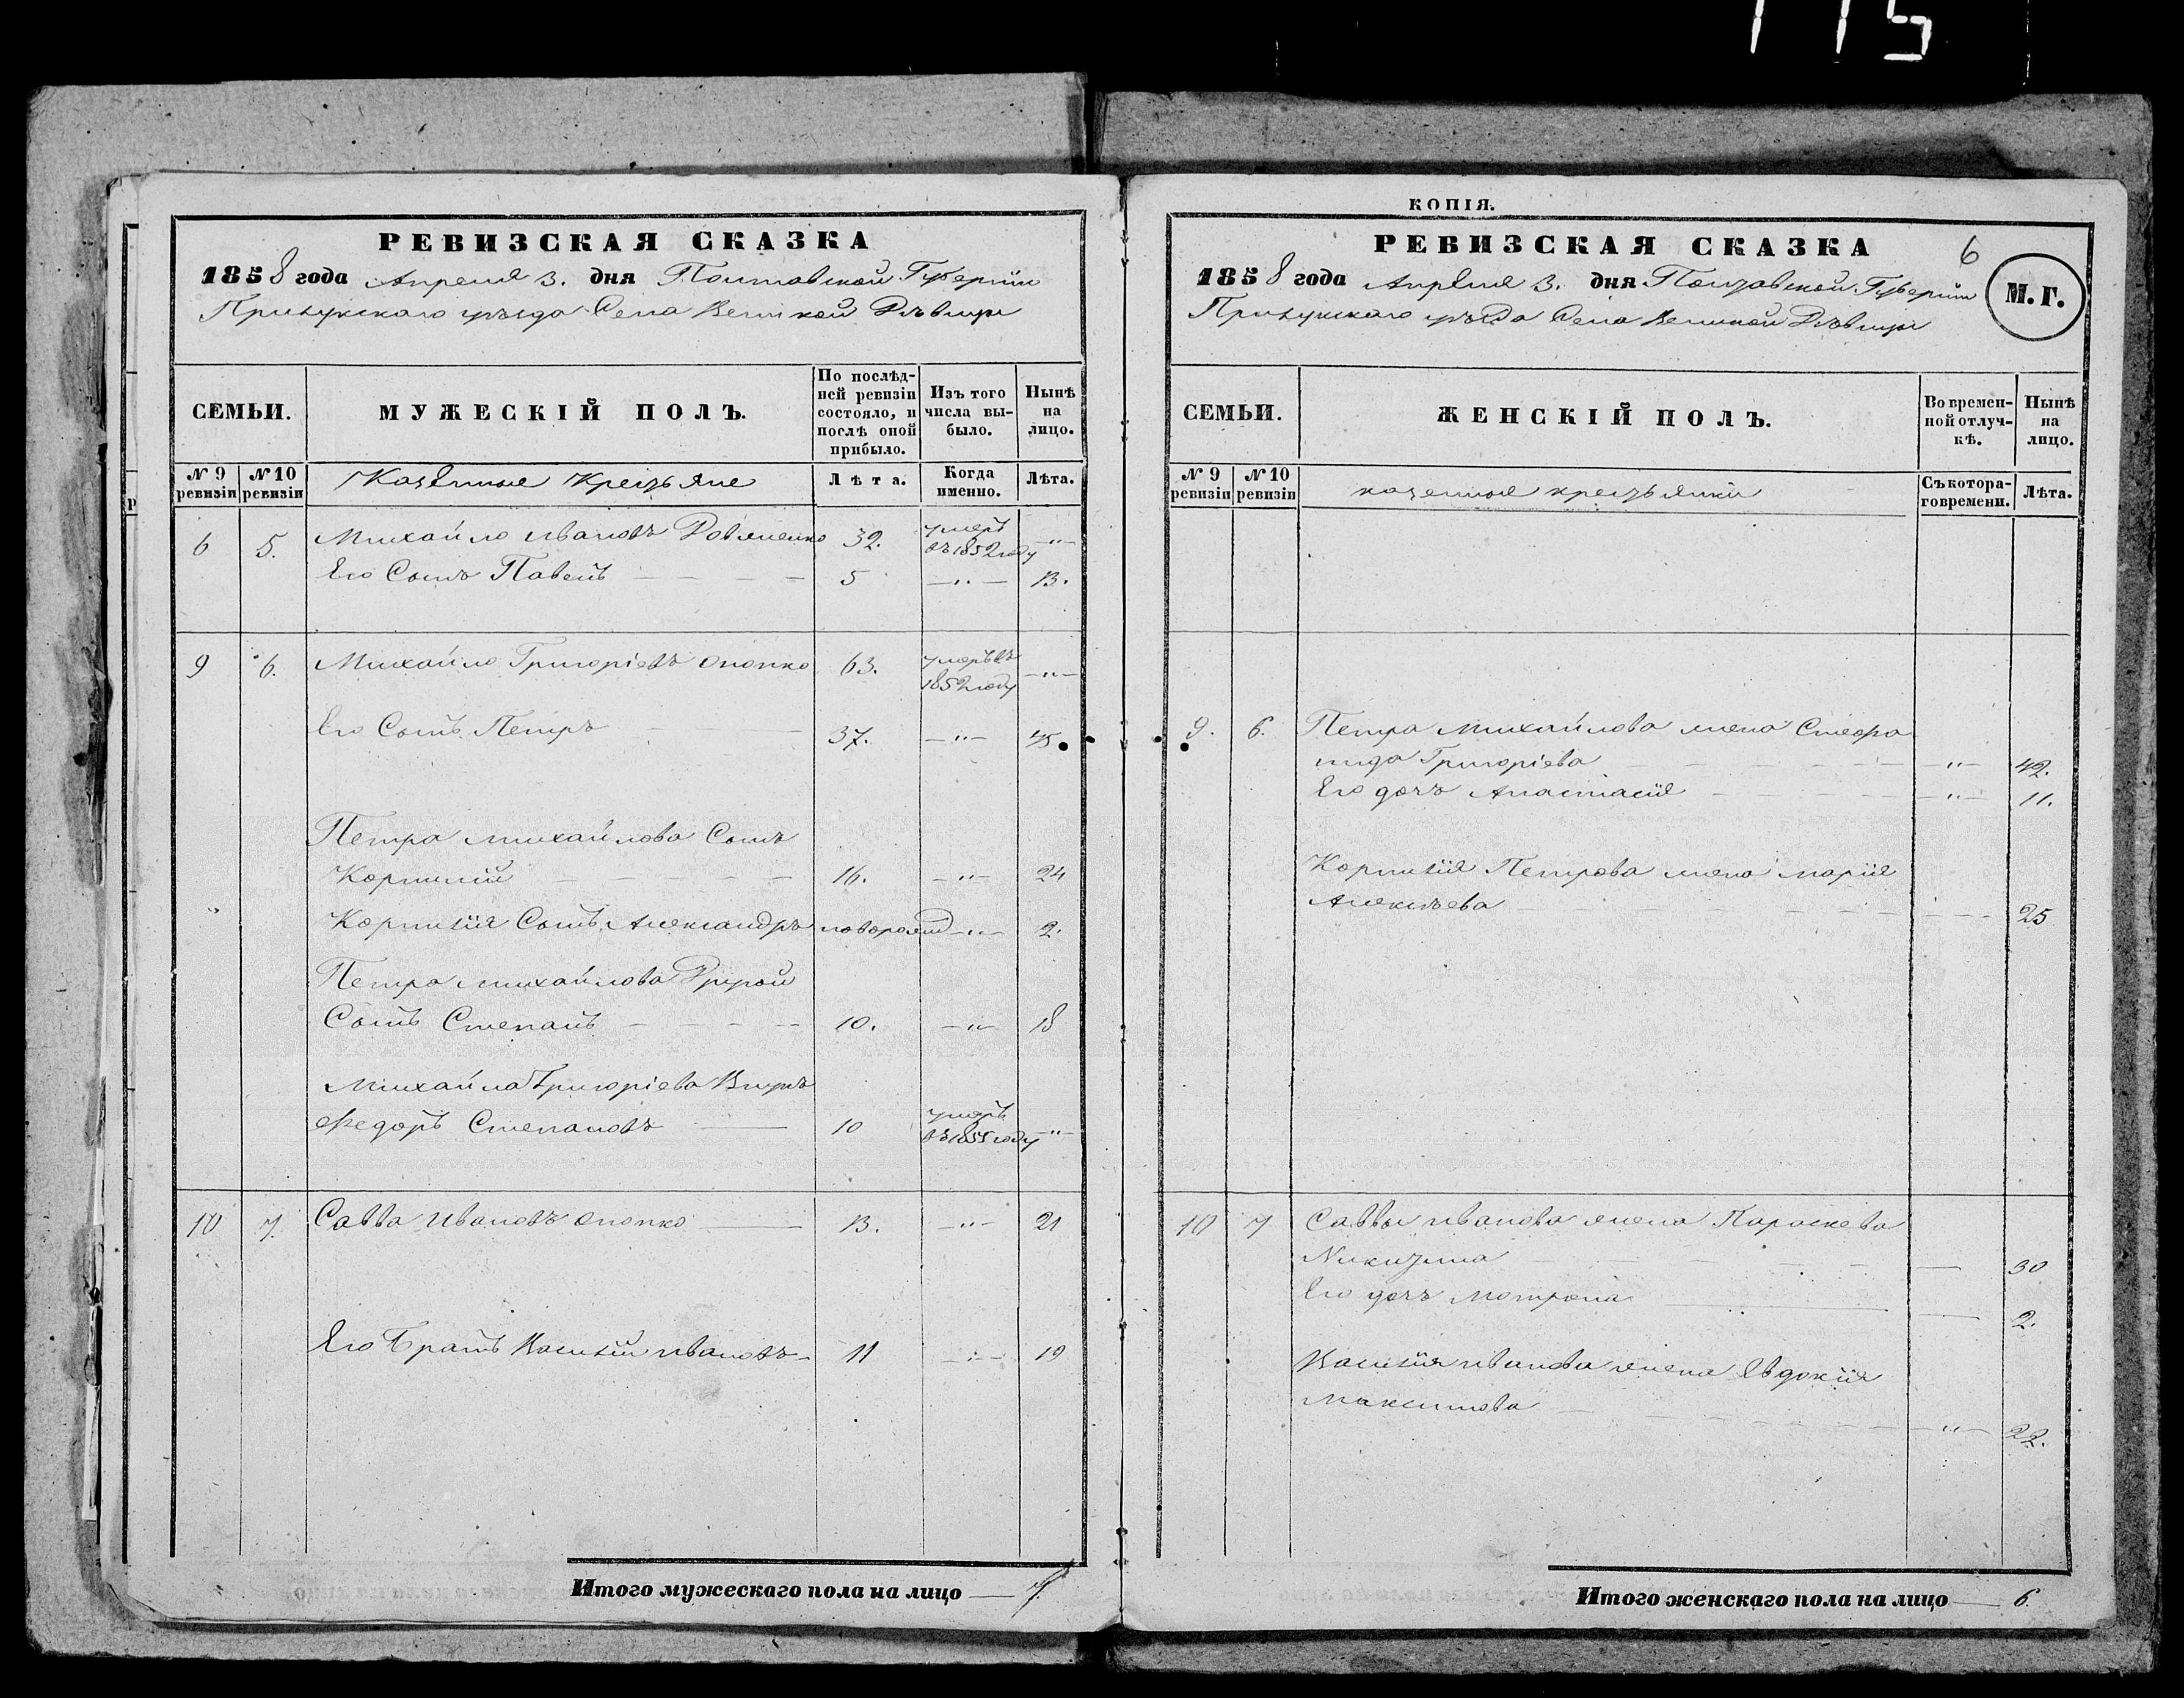 115
РЕВИЗСКАЯ СКАЗКА
1858 года Апреля 3. дня Полтавской Губерніи
Прилукскаго уѣзда Села Великой Дѣвицы
СЕМЬИ.
МУЖЕСКІЙ ПОЛЪ.
По послѣд-
ней ревизіи
состояло, и
послѣ оной
прибыло.
Изъ того
числа вы-
было.
Нынѣ
на
лицо.
№ 9
ревизіи
№ 10
ревизіи
Казенные Крестьяне
Лѣта.
Когда
именно.
Лѣта.
6 5. Михайло Ивановъ 32. умеръ въ 1852 году —"—
Его Сынъ Павелъ — — — — 5 —"— 13.
9 6. Михайло Григоріевъ Опопко 63. умеръ въ 1852 году —"—
Его Сынъ Петръ — — 37. —"— 45.
Петра Михайлова Сынъ
Корнилій — — — — 16. —"— 24
" Корнилія Сынъ Александръ новорожд —"— 2.
Петра Михайлова Другой
Сынъ Степанъ — — — — 10. —"— 18
Михайла Григоріева Внукъ
Федоръ Степановъ — 10 умеръ въ 1855 году —"—
10 7. Савва Ивановъ Опопко — 13. —"— 21
Его Братъ Василій Ивановъ — 11 —"— 19
Итого мужескаго пола на лицо — 7.
КОПІЯ.
РЕВИЗСКАЯ СКАЗКА
6
1858 года Апреля 3. дня Полтавской Губерніи
М. Г.
Прилукскаго уѣзда Села Великой Дѣвицы
СЕМЬИ.
ЖЕНСКІЙ ПОЛЪ.
Во времен-
ной отлуч-
кѣ.
Нынѣ
на
лицо.
№ 9
ревизіи
№ 10
ревизіи
казенные крестьянки
Съ котора-
го времени.
Лѣта.
9. 6. Петра Михайлова жена Стефа
нида Григоріева — — — —"— 42.
Его дочь Анастасія — — — —"— 11.
Корнилія Петрова жена Марія
Алексѣева — — — — — — 25
10 7 Саввы Иванова жена Параскева
Никитина — — — — — 30
Его дочь Мотрона — — 2.
Василія Иванова жена Евдокія
Максимова — — — — —"— 22.
Итого женскаго пола на лицо — 6.